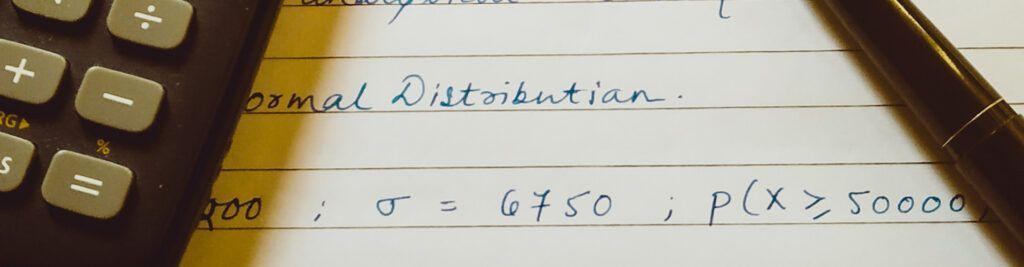 ÷
+
−
RG▸
%
S
=
ormal Distribution.
000 ; σ = 6750 ; P(X ≥ 50000